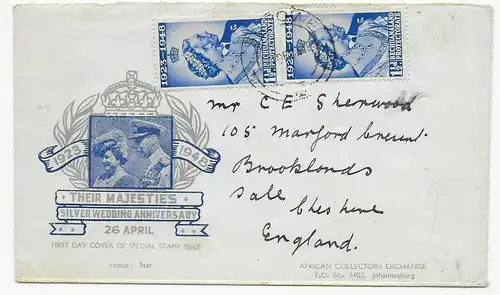 1923-1948
1½d
BECHUANALAND
PROTECTORATE
1923-1948
1½d
BECHUANALAND
PROTECTORATE
mr C E Sherwood
105 Marford Crescent.
Brooklands
Sale
Cheshire
England.
1923 1948
THEIR MAJESTIES
SILVER WEDDING ANNIVERSARY
26 APRIL
FIRST DAY COVER OF SPECIAL STAMP ISSUE
PHOTO: Star
AFRICAN COLLECTORS EXCHANGE
P.O. Box 5403, Johannesburg